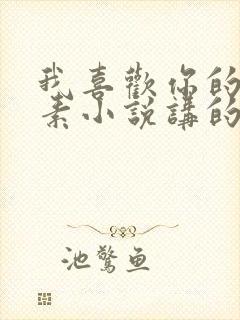 我喜歡你的
素小說講的
池驚鱼